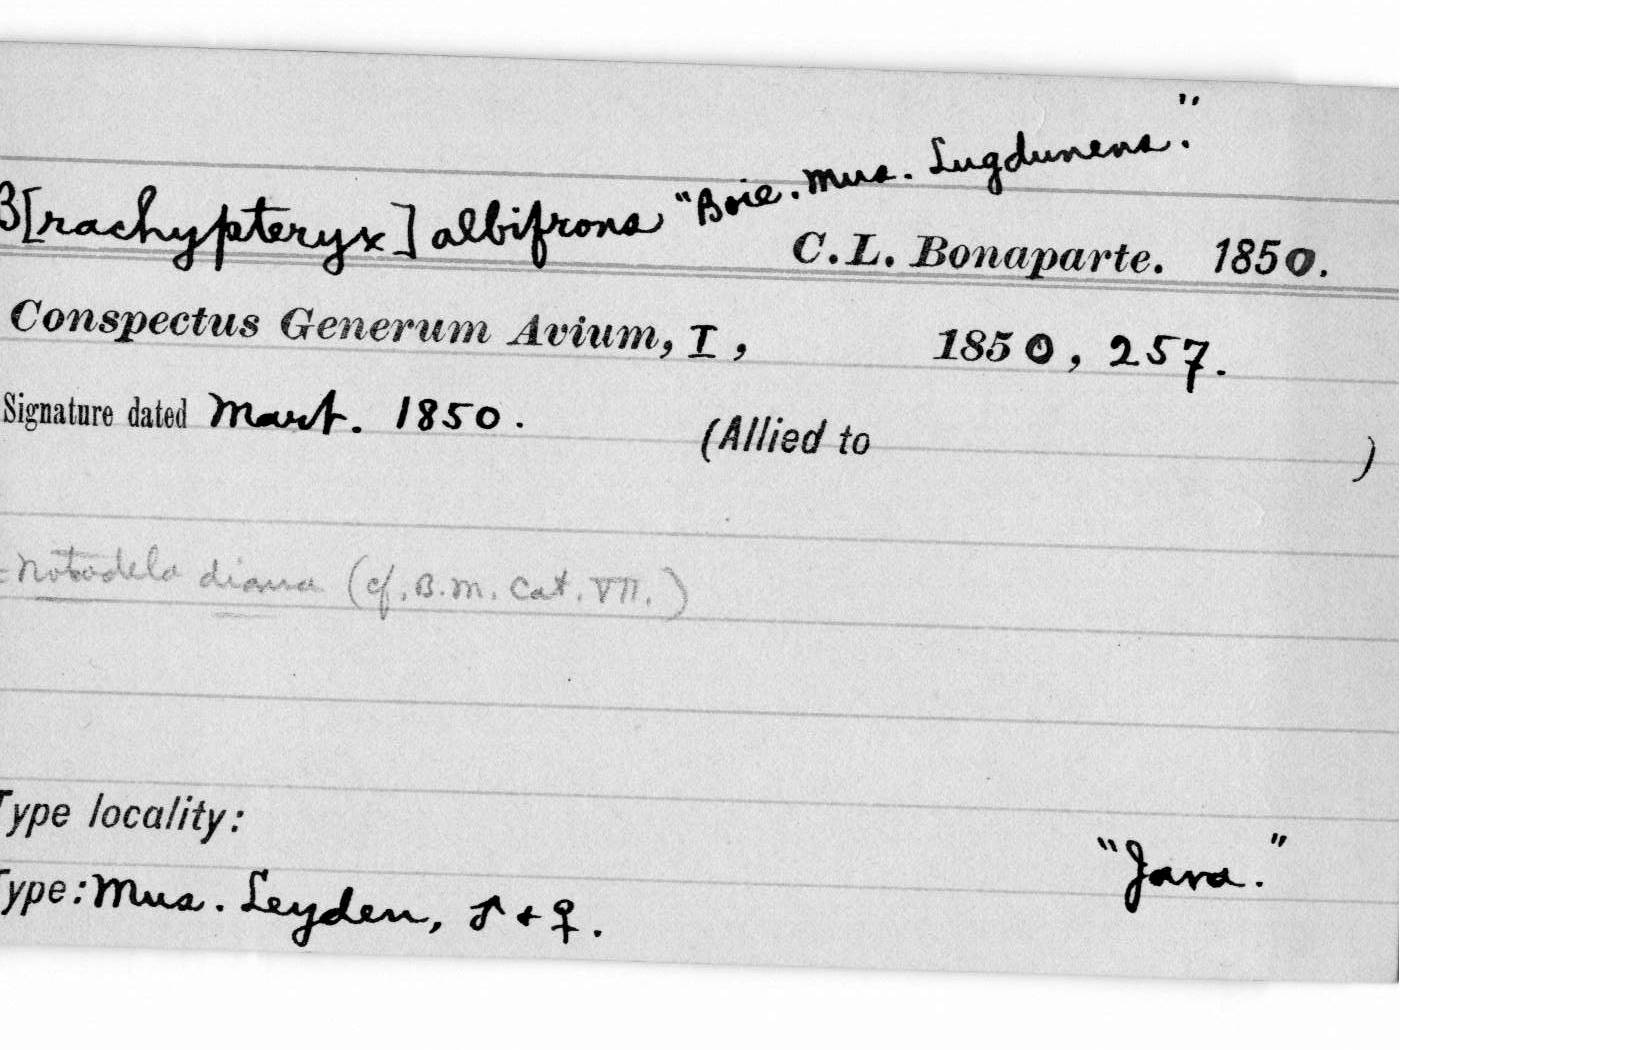 B[rachypteryx] albifrons "Boie. Mus. Lugdunens."
C.L. Bonaparte. 1850.
Conspectus Generum Avium, I, 1850, 257.
Signature dated Mart. 1850. (Allied to )
= Notodela diana (cf. B.M. Cat. VII.)
Type locality: "Java."
Type: Mus. Leyden, ♂ + ♀.